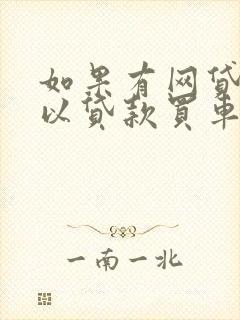 如果有网贷
以贷款買車
一南一北